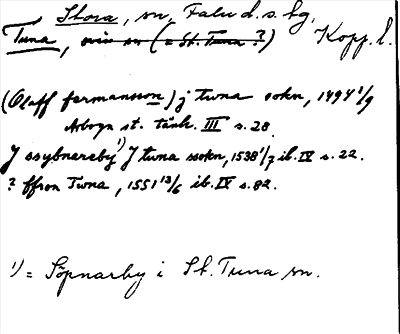 Stora, sn, Falu d. s. bg,
Tuna, (= St. Tuna?) Kopp. l.
(Olaff fermansson) j twna sokn, 1494 1/9
Arboga st. tänk. III s. 28
J ssybnareby 1) J twna ssokn, 1538 1/7 ib. IV s. 22.
? ffron Twna, 1551 13/6 ib. IV s. 82.
1) = Söpnarby i St. Tuna sn.